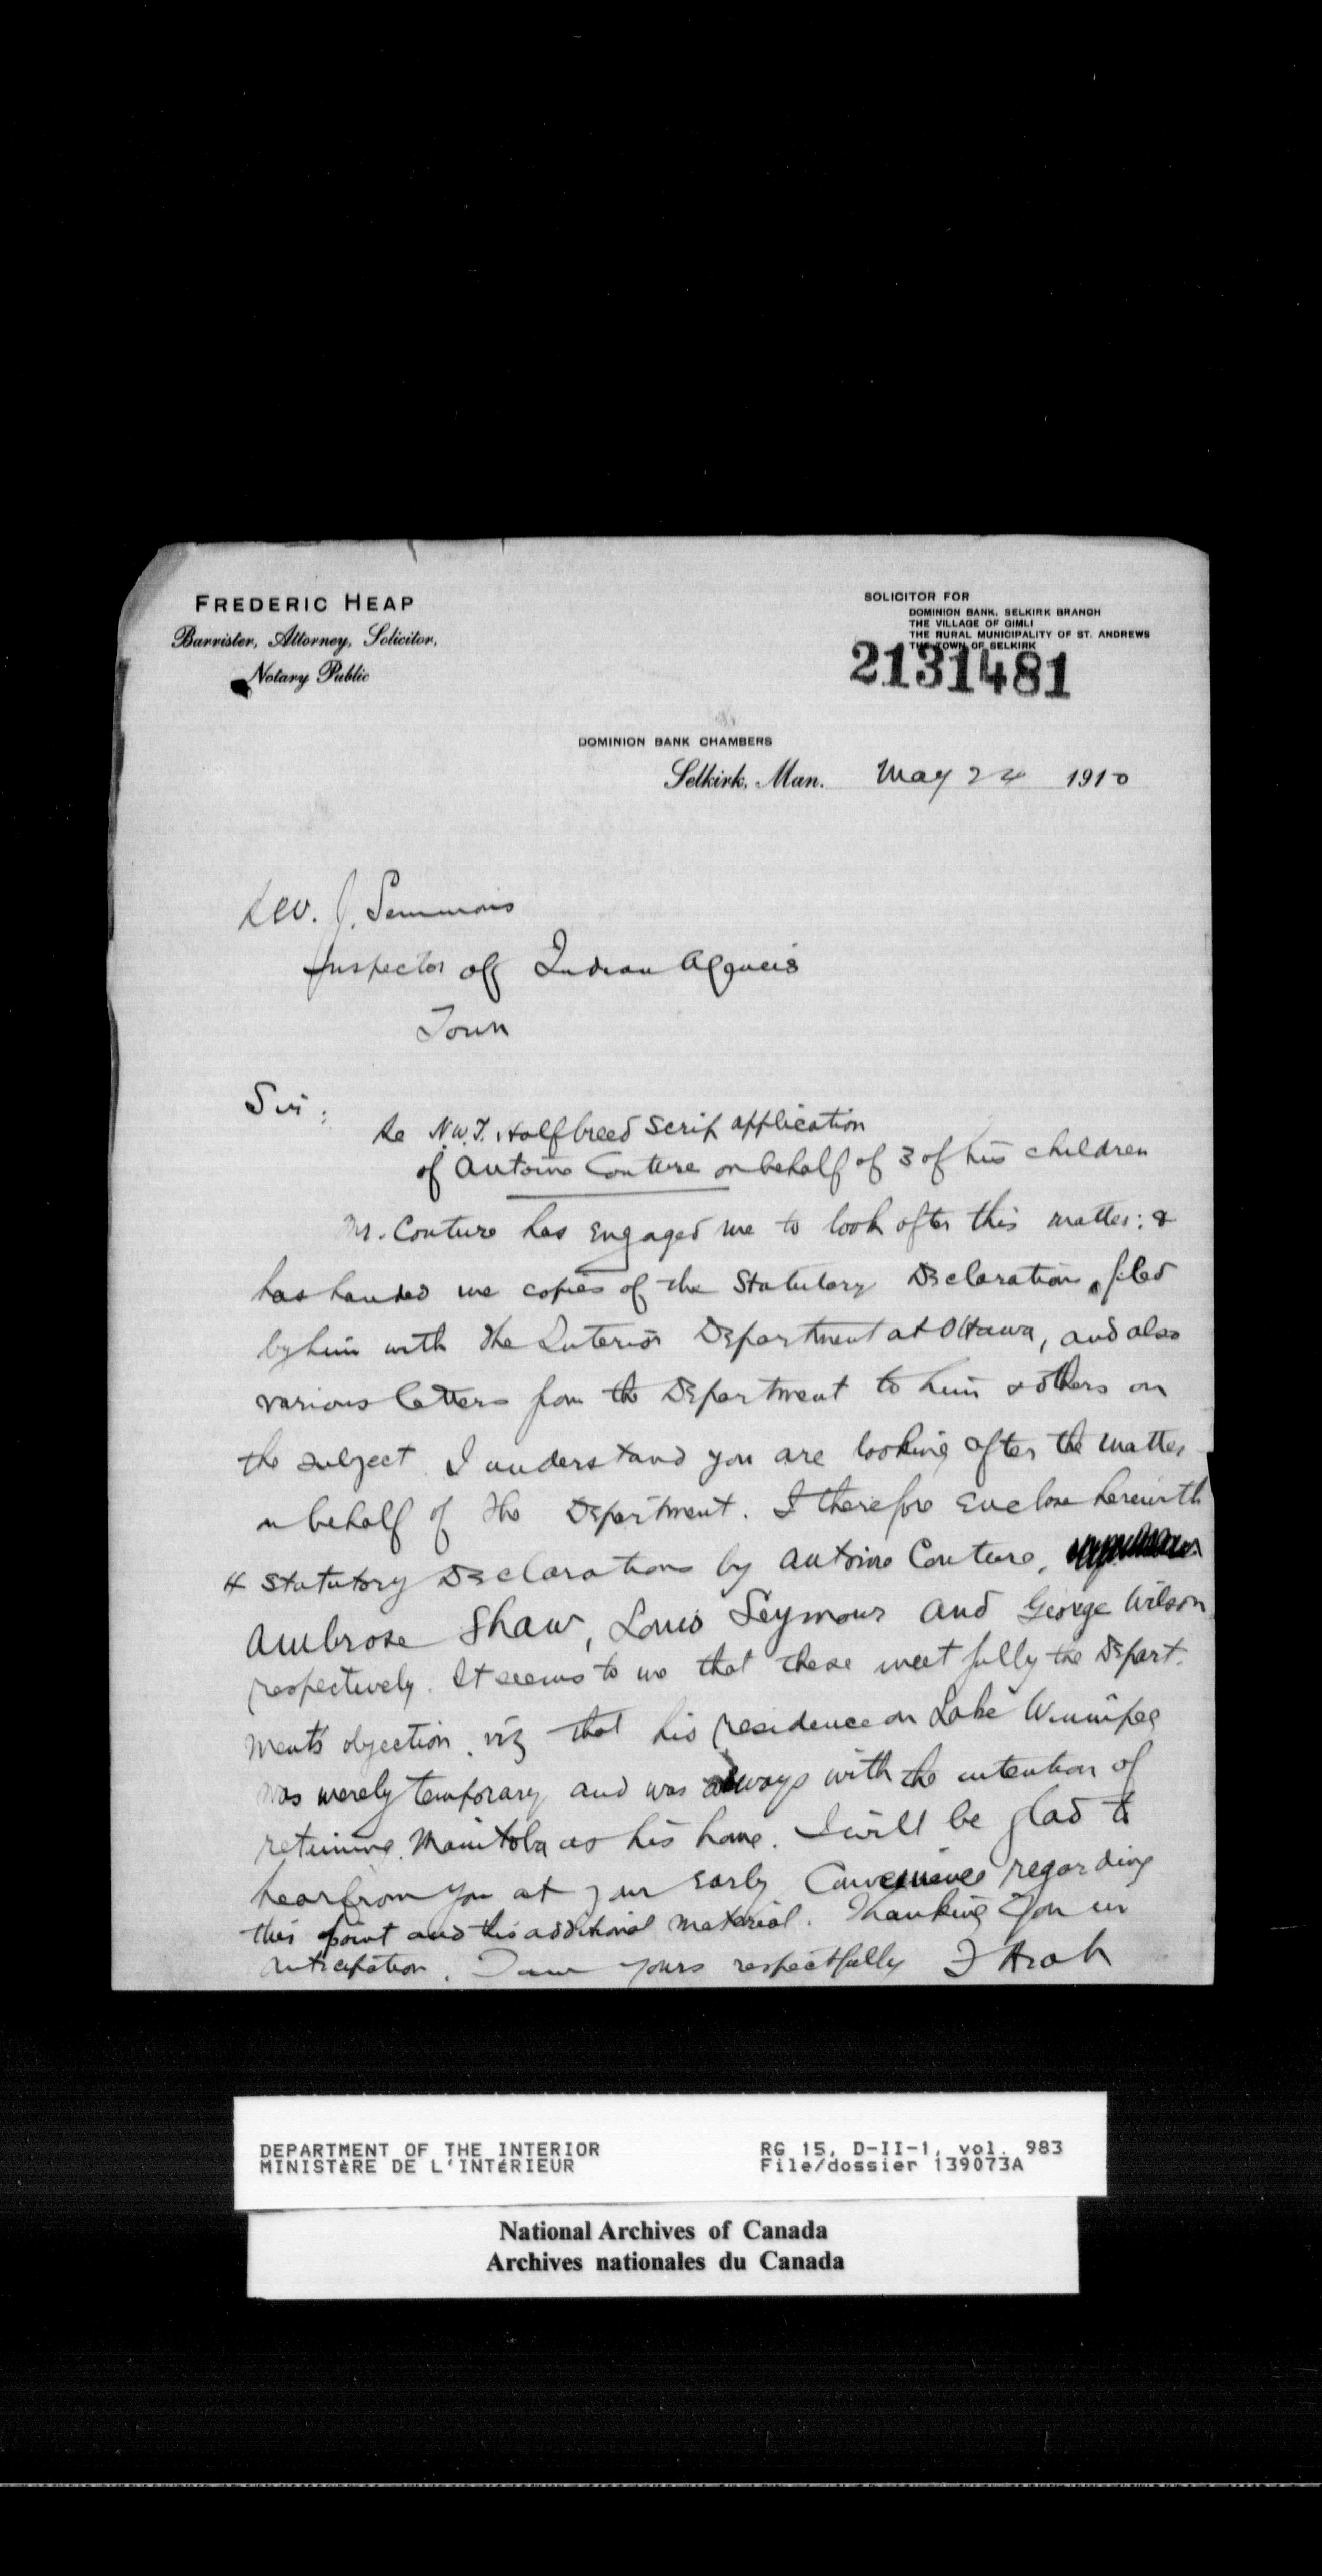 FREDERIC HEAP
Barrister, Attorney, Solicitor,
Notary Public
SOLICITOR FOR
DOMINION BANK, SELKIRK BRANCH
THE VILLAGE OF GIMLI
THE RURAL MUNICIPALITY OF ST. ANDREWS
THE TOWN OF SELKIRK
2131481
DOMINION BANK CHAMBERS
Selkirk, Man. May 24 1910
Rev. J. Semmons
Inspector of Indian Agencies
Town
Sir:
Re N.W.T. Halfbreed Scrip application
of Antoine Couture on behalf of 3 of his children
Mr. Couture has engaged me to look after this matter: &
has handed me copies of the Statutory Declaration filed
by him with the Interior Department at Ottawa, and also
various letters from the Department to him & others on
the subject. I understand you are looking after the matter
on behalf of the Department. I therefore enclose herewith
4 Statutory Declarations by Antoine Couture,
Ambrose Shaw, Louis Seymour and George Wilson
respectively. It seems to me that these meet fully the Depart-
ment's objection, viz that his residence on Lake Winnipeg
was merely temporary and was always with the intention of
retaining Manitoba as his home. I will be glad to
hear from you at your early convenience regarding
this point and this additional material. Thanking you in
anticipation. I am yours respectfully F Heap
DEPARTMENT OF THE INTERIOR
MINISTÈRE DE L'INTÉRIEUR
RG 15, D-II-1, vol. 983
File/dossier 139073A
National Archives of Canada
Archives nationales du Canada